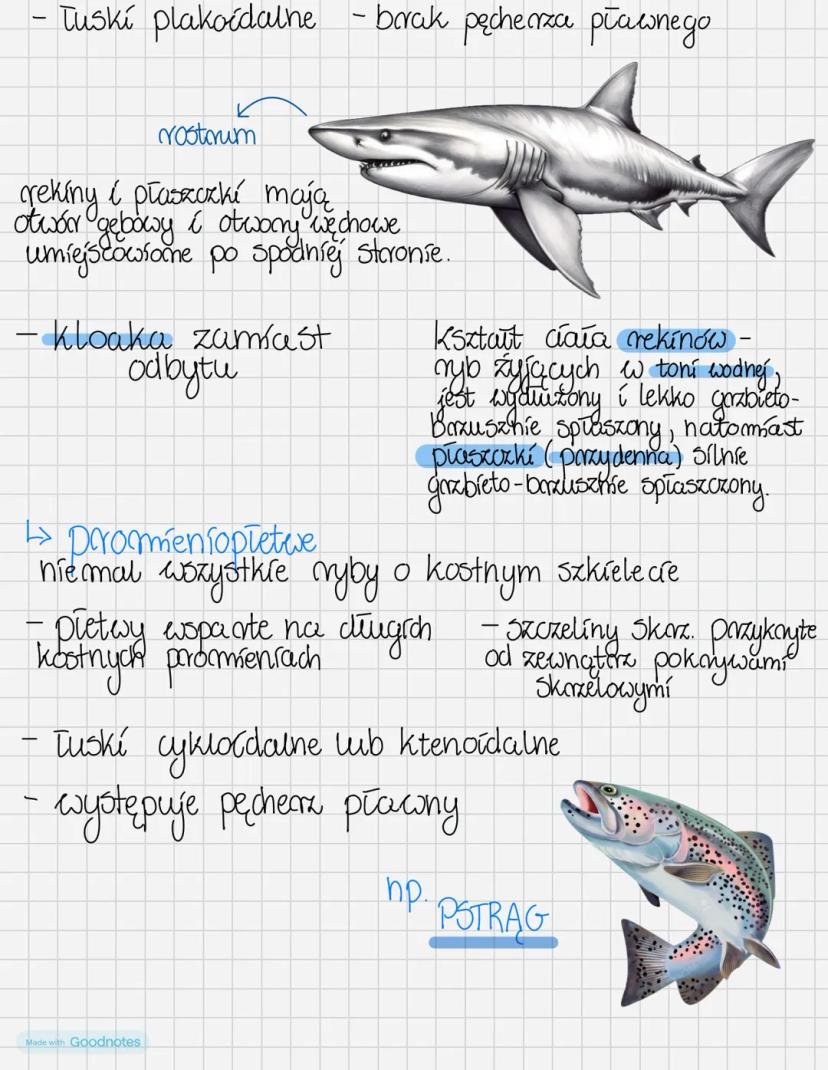 - łuski plakoidalne - brak pęcherza pławnego
rostrum
rekiny i płaszczki mają
otwór gębowy i otwory węchowe
umiejscowione po spodniej stronie.
- kloaka zamiast
odbytu
kształt ciała rekinów -
ryb żyjących w toni wodnej,
jest wydłużony i lekko grzbieto-
brzusznie spłaszony, natomiast
płaszczki (przydenna) silnie
grzbieto-brzusznie spłaszczony.
↳ promieniopłetwe
niemal wszystkie ryby o kostnym szkielecie
- płetwy wsparte na długich
kostnych promieniach
- szczeliny skrz. przykryte
od zewnątrz pokrywami
skrzelowymi
- łuski cykloidalne lub ktenoidalne
- występuje pęcherz pławny
np. PSTRĄG
Made with Goodnotes